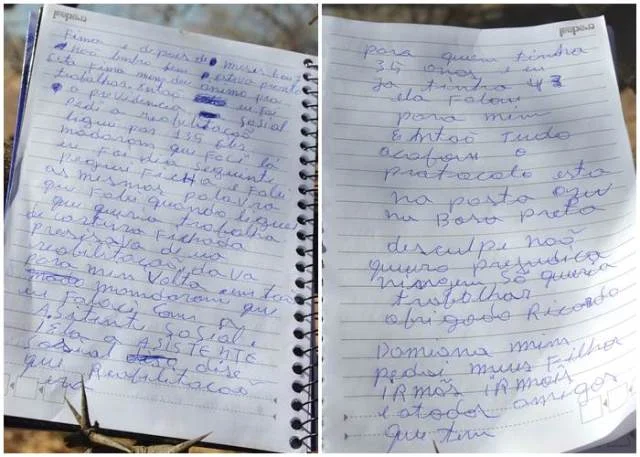 Firma e depois de meses bou
Não lembro bem estava presente
Esta firma mim deu animo pra
trabalhar. Então eu fui
a previdencia Social
Pedi a reabilitação
liguei pos 135 eles
madaram que fosi lá
eu Foi dia seguinte
peguei Ficha e Falei
as mesmas palavra
que Falei quando liguei
que queria trabalha
de carteira Fichada
presizava de uma
reabilitação, dava
para mim Volta então
mandaram que
eu Falase com a
Asistente Social e
lela a ASISTENTE
Social dise
que Reabilitacão
era
tilibra
para quem tinha
35 anos e eu
ja tinha 43
ela Falou
para mim
E Antão Tudo
acabou o
protocolo esta
na pasta azul
na Bosa preta
desculpe Não
quero prejudica
ninguem Só queria
trabalhar
obrigado Ricardo
Domiana mim
perdoi meus Filha
IRmãs IRmãos
e atodos amigos
que tem